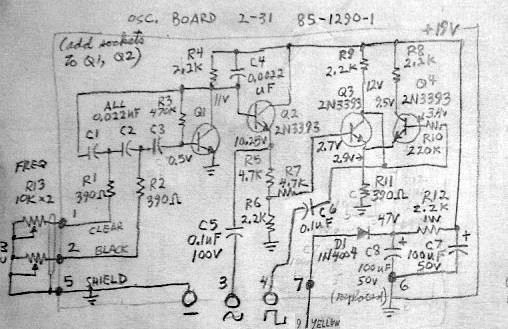 OSC. BOARD 2-31 85-1290-1
+19V
(add sockets
to Q1, Q2)
R4
2.2K
C4
0.0022
uF
R9
2.2K
R8
2.2K
Q4
2N3393
ALL
0.022uF
R3
470K
Q1
11V
Q2
2N3393
Q3
2N3393
12V
C1
C2
C3
0.5V
10.25V
2.7V
R10
220K
R5
4.7K
R7
4.7K
FREQ
R13
10K x2
R1
390Ω
R2
390Ω
R6
2.2K
C6
0.1uF
R11
390Ω
R12
2.2K
1W
1
CLEAR
2
BLACK
5
SHIELD
C5
0.1uF
100V
3
4
7
D1
1N4004
47V
C8
100uF
50V
(replaced)
C7
100uF
50V
6
YELLOW